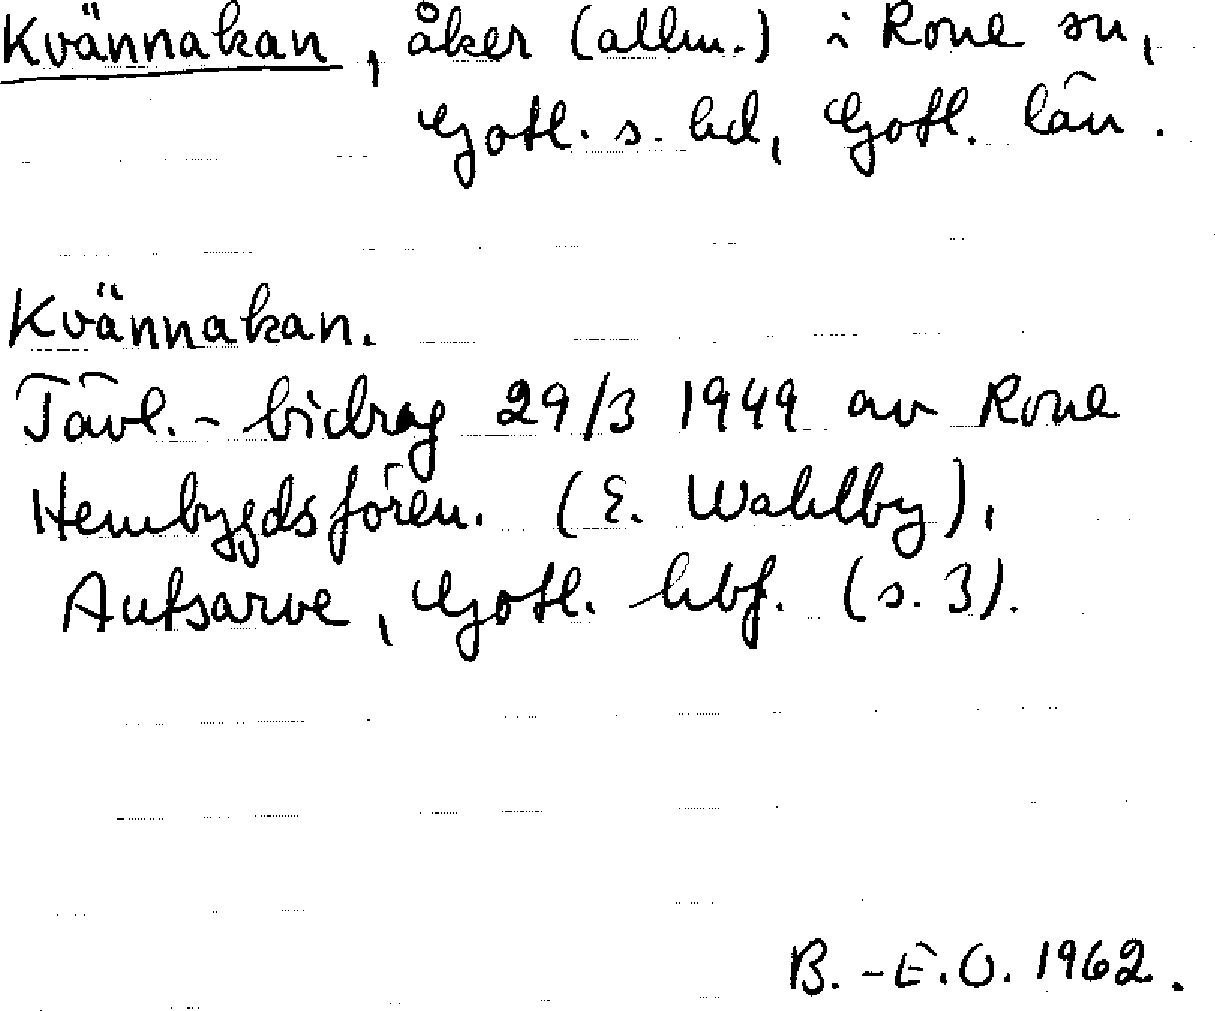 Kvännakan, åker (allm.) i Rone sn,
Gotl. s. hd, Gotl. län.
Kvännakan.
Tävl.-bidrag 29/3 1949 av Rone
Hembygdsfören. (E. Wahlby),
Autsarve, Gotl. hbf. (s. 3).
B.-E.O. 1962.